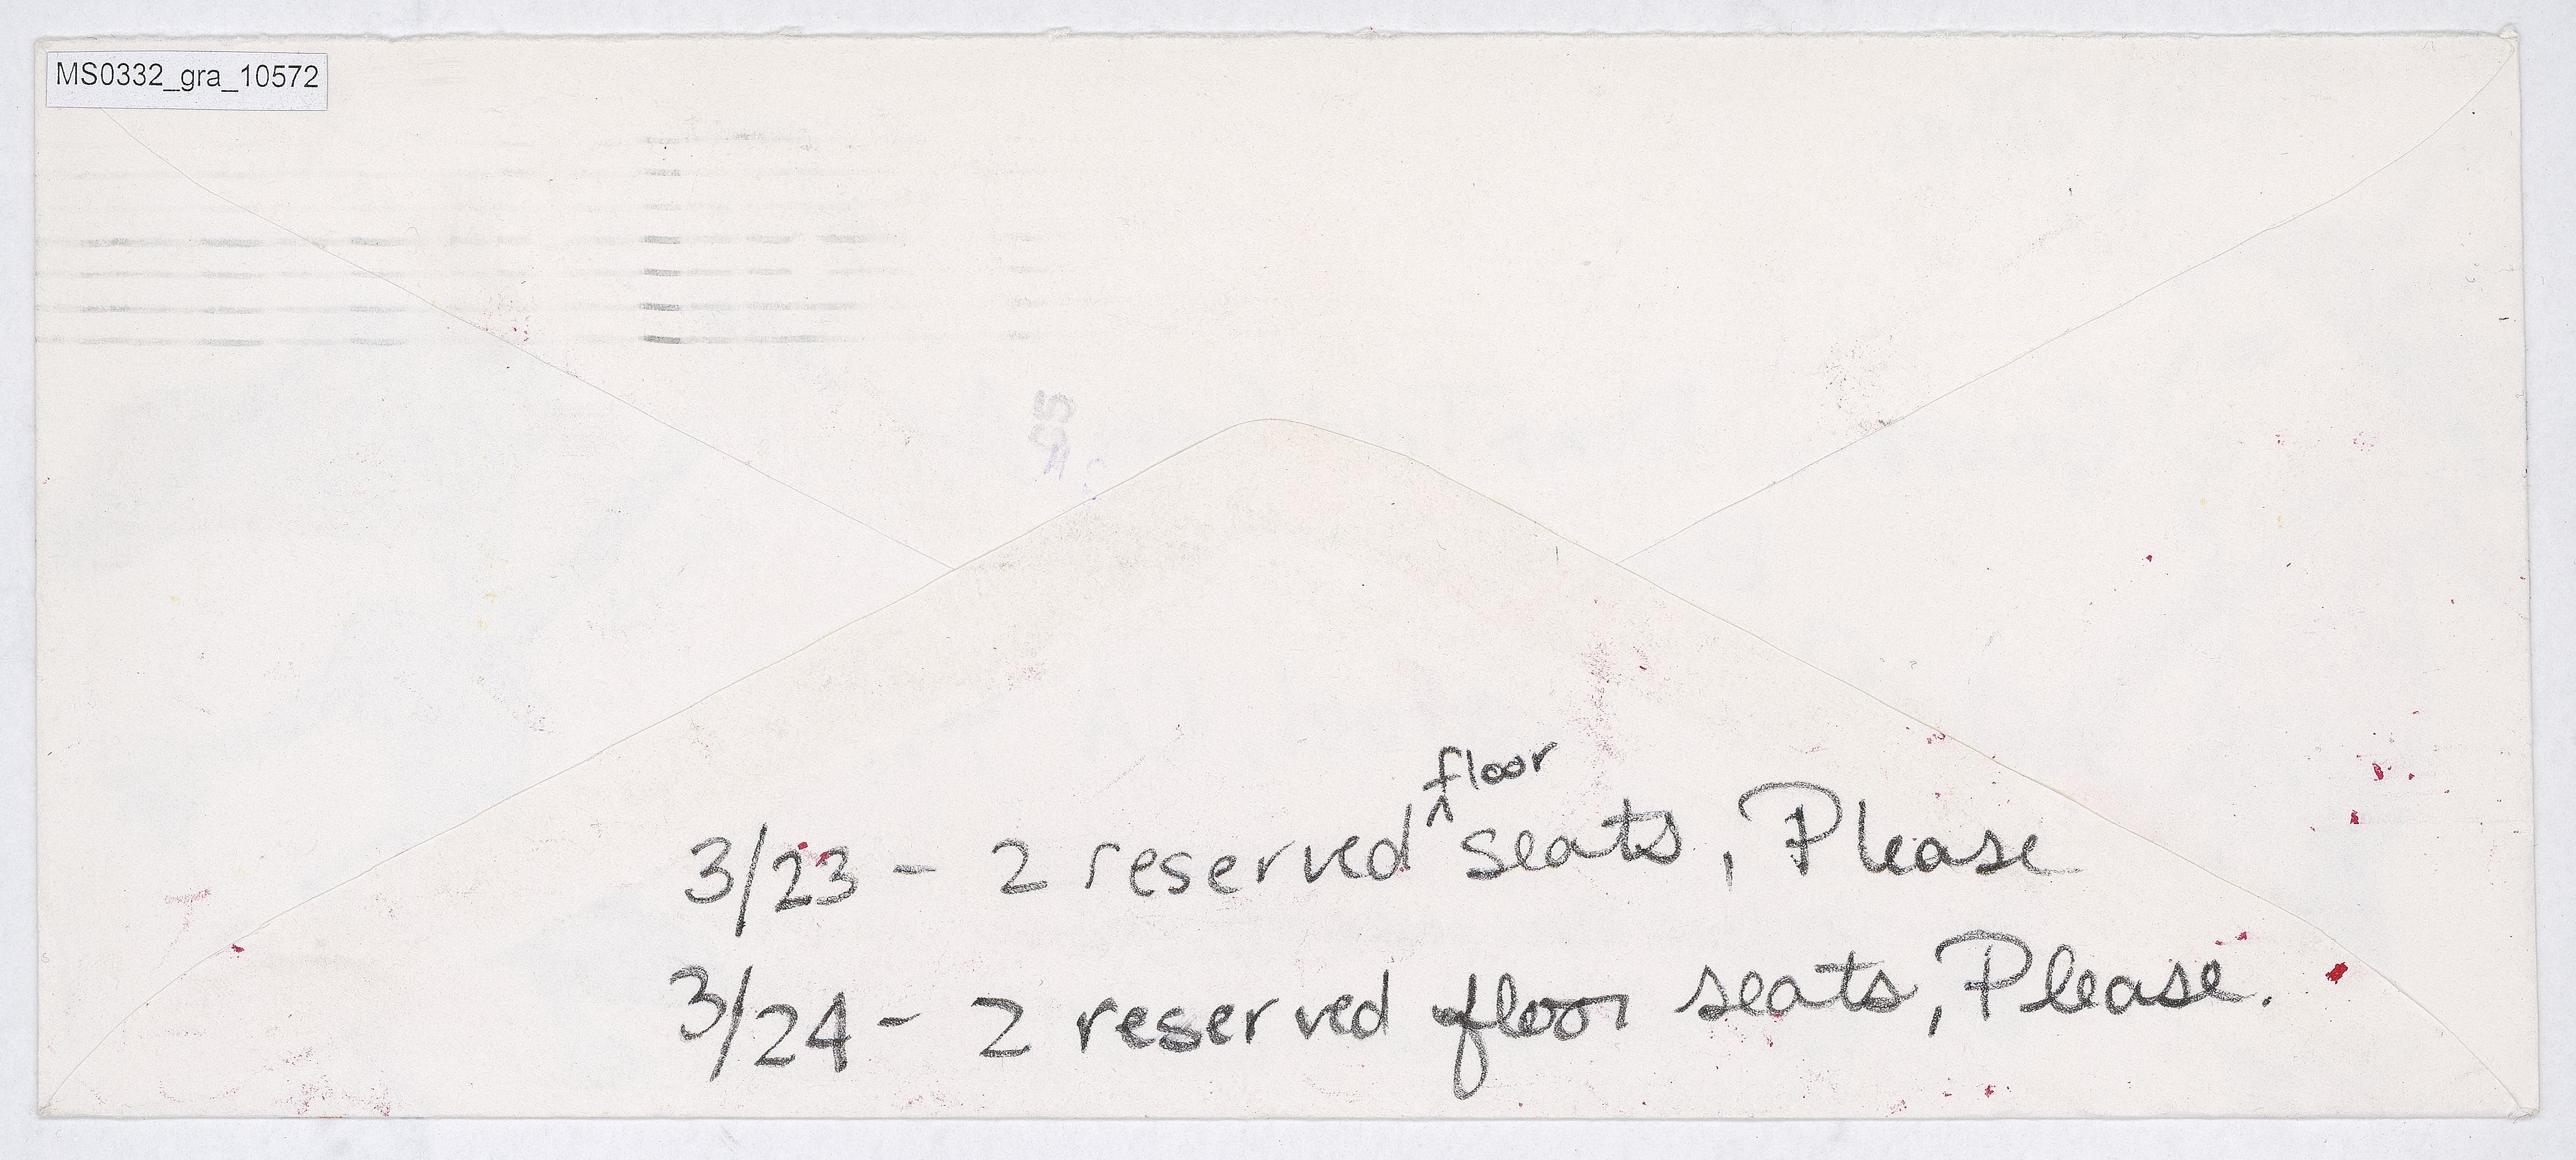 MS0332_gra_10572
floor
3/23 - 2 reserved ^ seats, Please
3/24 - 2 reserved floor seats, Please.